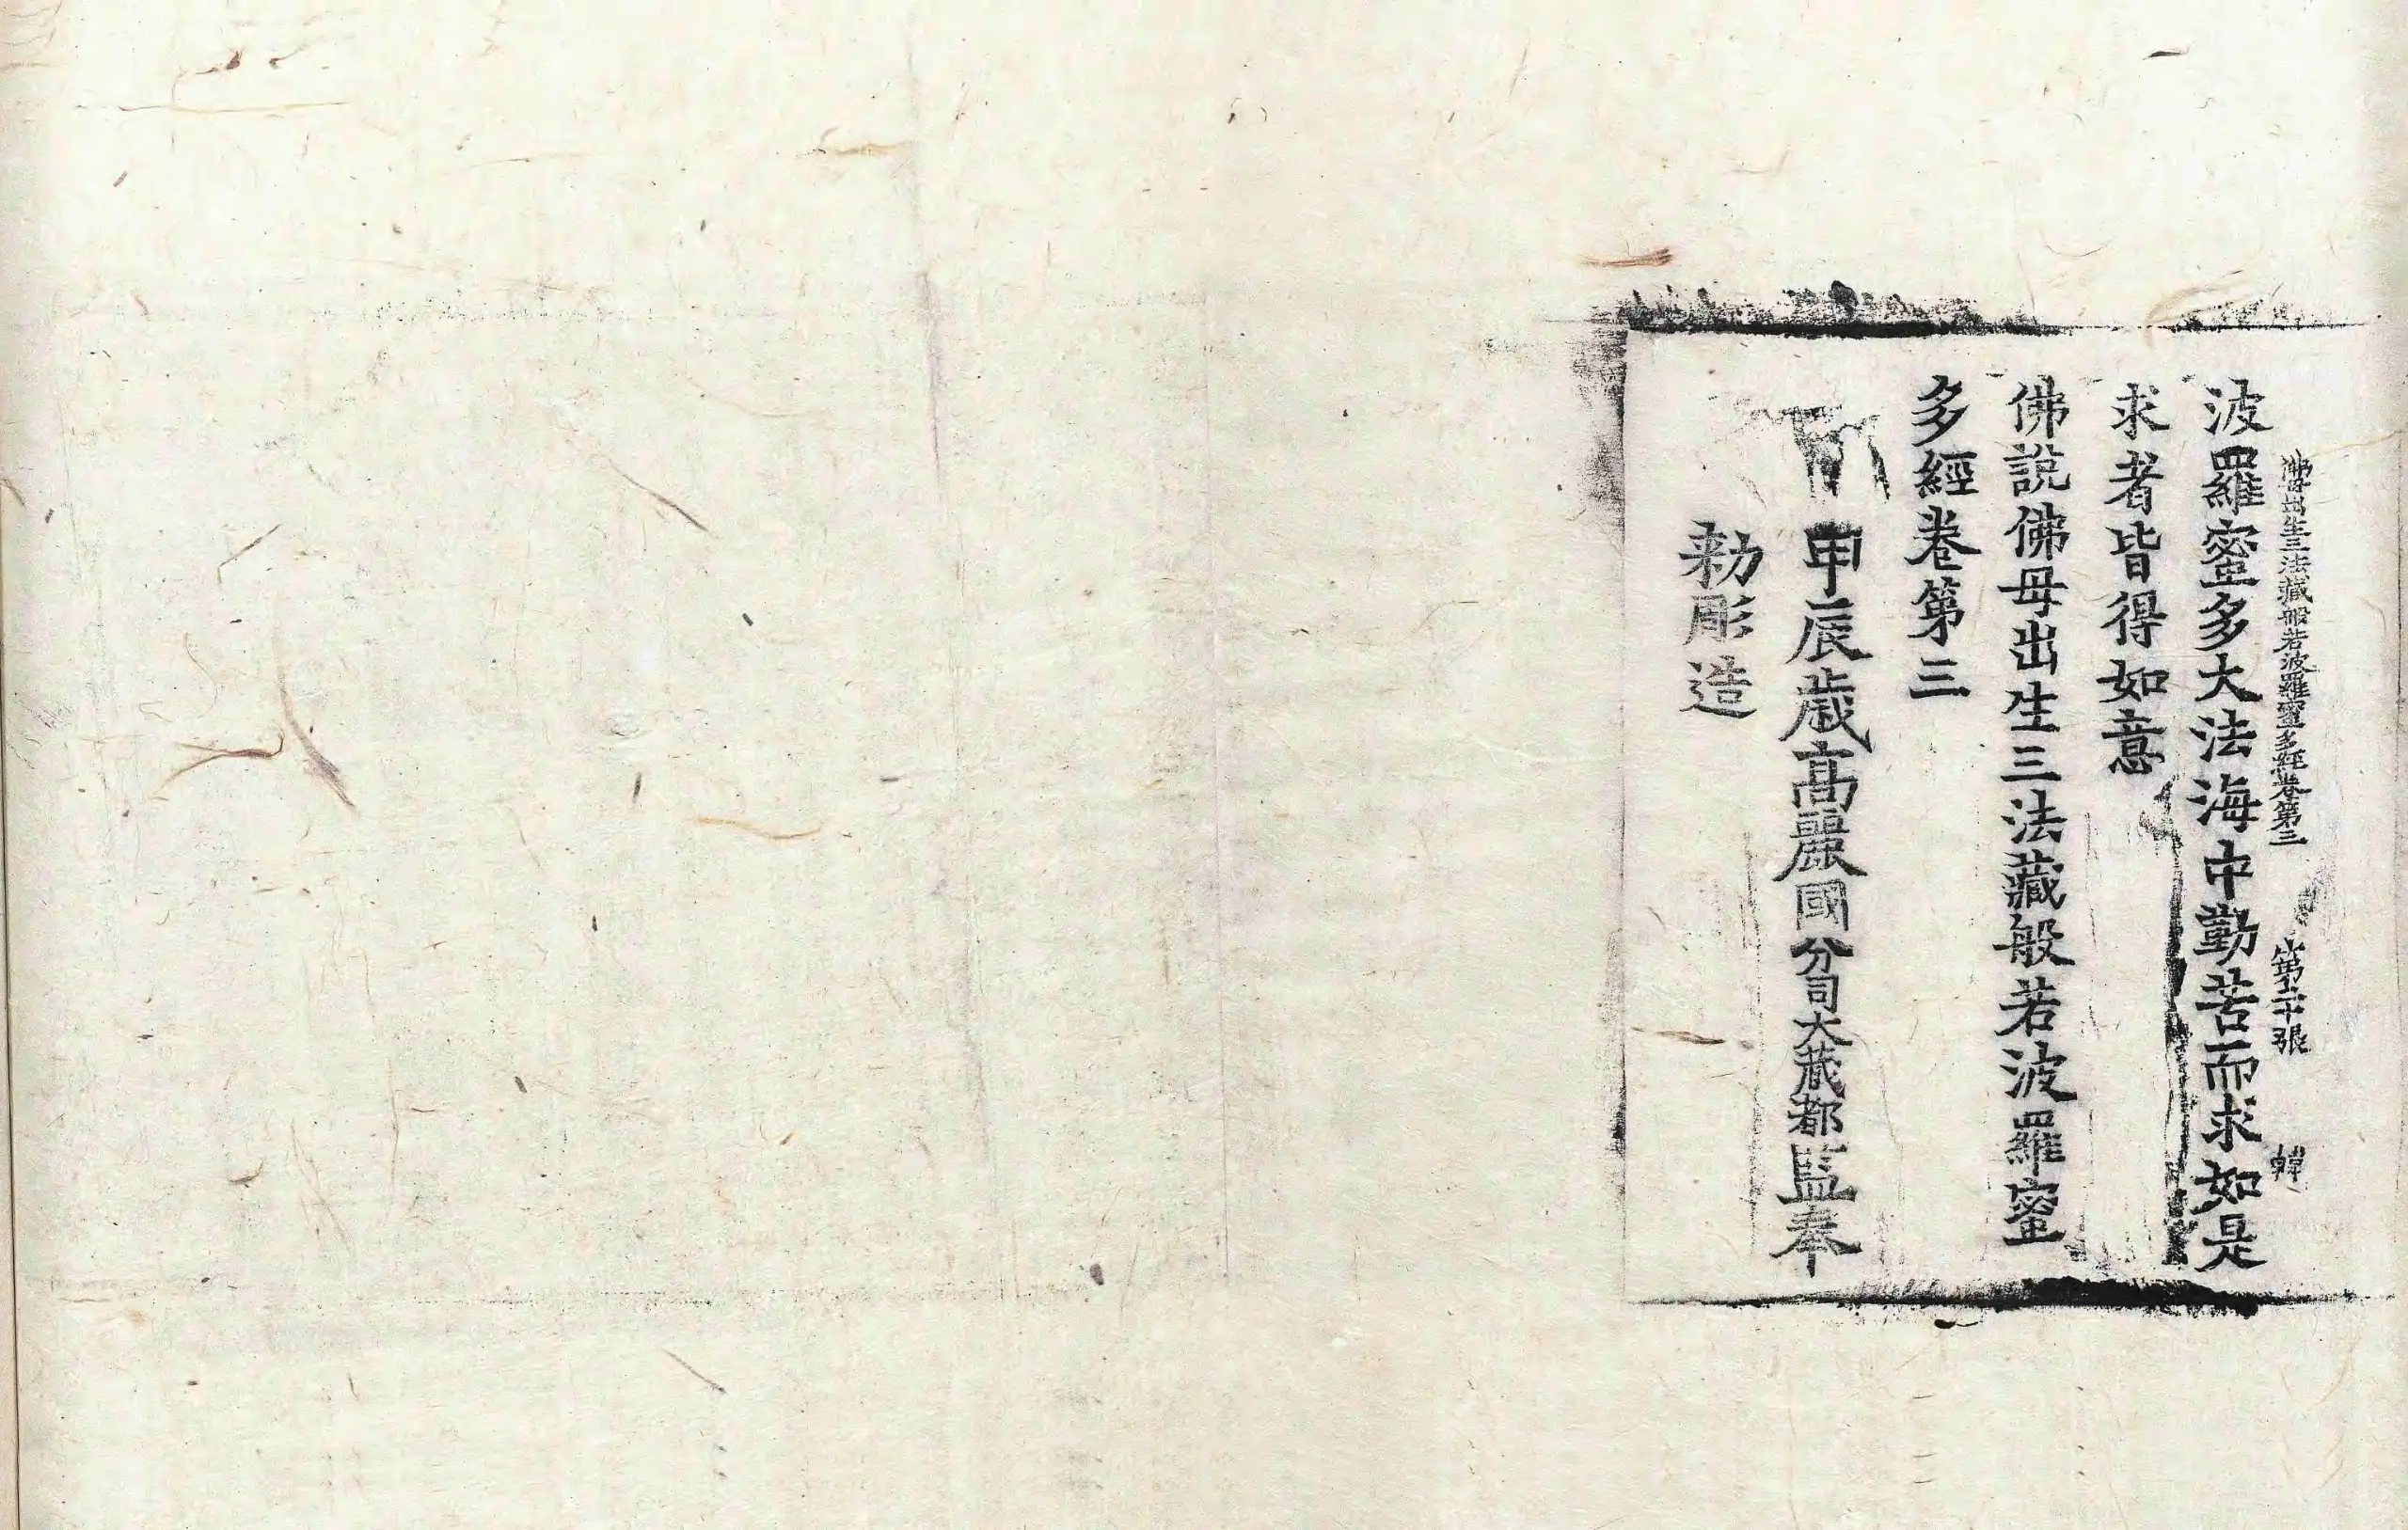 佛母出生三法藏般若波羅蜜多經卷第三 第二十張 韓
波羅蜜多大法海中勤苦而求如是
求者皆得如意
佛說佛母出生三法藏般若波羅蜜
多經卷第三
甲辰歲高麗國分司大藏都監奉
勅彫造